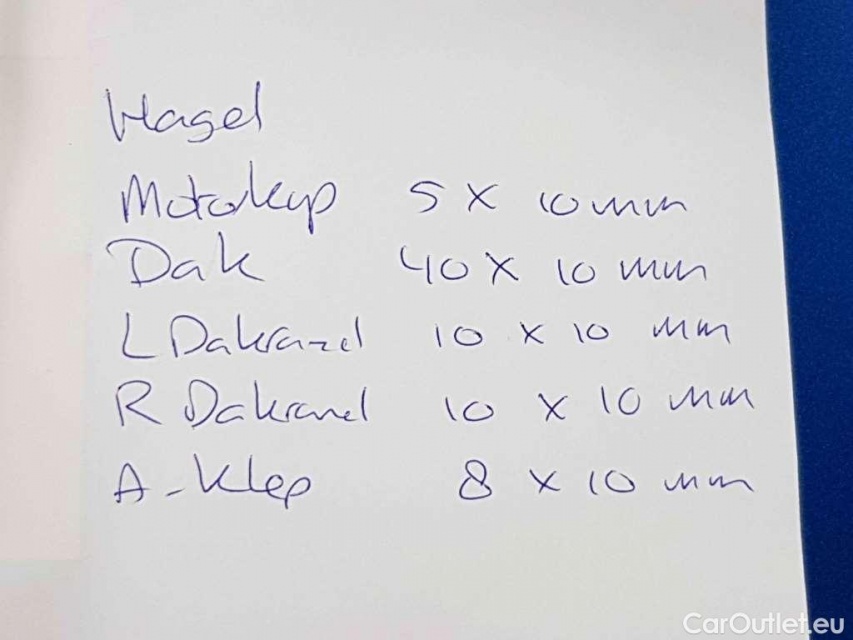 Hagel
Motorkap 5 X 10 mm
Dak 40 X 10 mm
L Dakrand 10 x 10 mm
R Dakrand 10 x 10 mm
A-Klep 8 x 10 mm
CarOutlet.eu